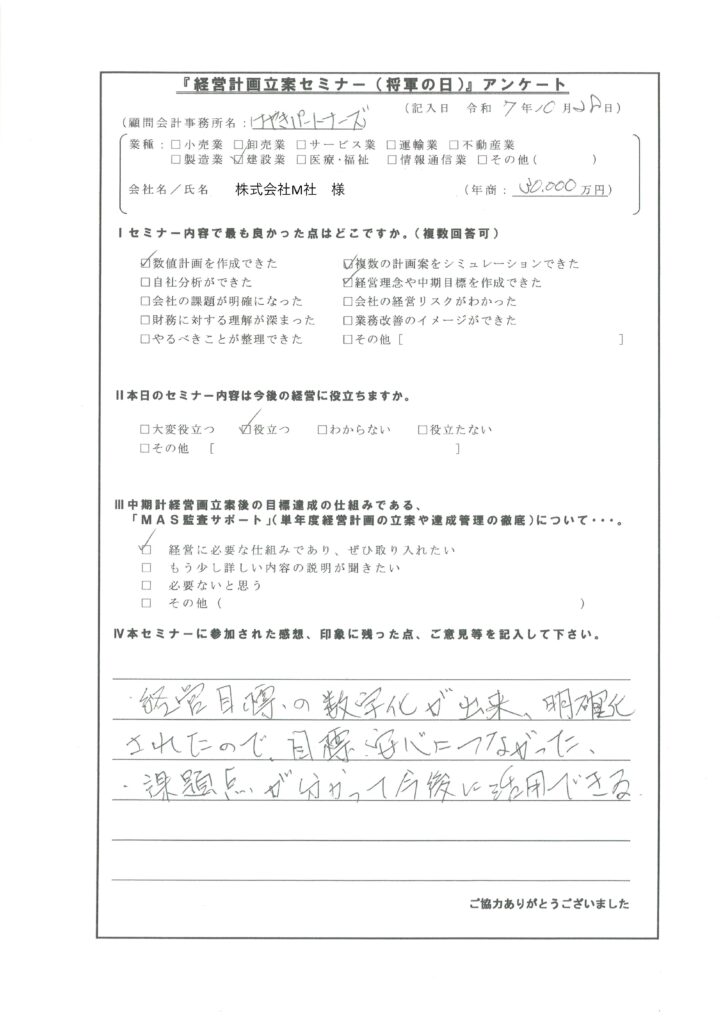 『経営計画立案セミナー(将軍の日)』アンケート
(記入日 令和 7年10月28日)
(顧問会計事務所名:けやきパートナーズ
業種:□小売業 □卸売業 □サービス業 □運輸業 □不動産業
□製造業 ☑建設業 □医療・福祉 □情報通信業 □その他( )
会社名/氏名 株式会社M社 様 (年商: 30.000 万円)
Ⅰセミナー内容で最も良かった点はどこですか。(複数回答可)
☑数値計画を作成できた ☑複数の計画案をシミュレーションできた
□自社分析ができた ☑経営理念や中期目標を作成できた
□会社の課題が明確になった □会社の経営リスクがわかった
□財務に対する理解が深まった □業務改善のイメージができた
□やるべきことが整理できた □その他[ ]
Ⅱ本日のセミナー内容は今後の経営に役立ちますか。
□大変役立つ ☑役立つ □わからない □役立たない
□その他 [ ]
Ⅲ中期計経営画立案後の目標達成の仕組みである、
「MAS監査サポート」(単年度経営計画の立案や達成管理の徹底)について・・・。
☑ 経営に必要な仕組みであり、ぜひ取り入れたい
□ もう少し詳しい内容の説明が聞きたい
□ 必要ないと思う
□ その他( )
Ⅳ本セミナーに参加された感想、印象に残った点、ご意見等を記入して下さい。
・経営目標の数字化が出来、明確化
されたので、目標、安心につながった、
・課題点が分かって今後に活用できる
ご協力ありがとうございました